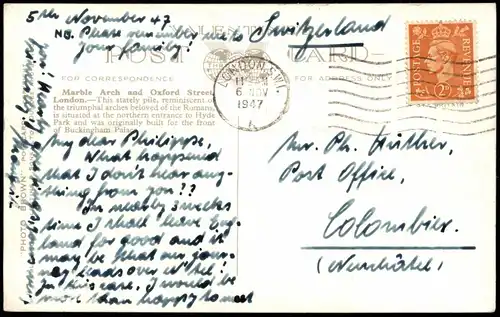 5th November 47
NB. Please remember me to
your family!
Switzerland
VALENTINE'S
POST CARD
FOR CORRESPONDENCE
FOR ADDRESS ONLY
Marble Arch and Oxford Street,
London.—This stately pile, reminiscent of
the triumphal arches beloved of the Romans,
is situated at the northern entrance to Hyde
Park and was originally built for the front
of Buckingham Palace
LONDON. S.W.1.
6 NOV
1947
A
POSTAGE
REVENUE
2D
My dear Philippe,
What happened
that I don't hear any-
thing from you??
In nearly 3 weeks
time I shall leave Eng-
land for good and it
may be that my jour-
ney leads over N'tel!
In this case, I would be
more than happy to meet
you!
"PHOTO BROWN"
Mr. Ph. Huther,
Post Office,
Colombier.
(Neuchâtel)